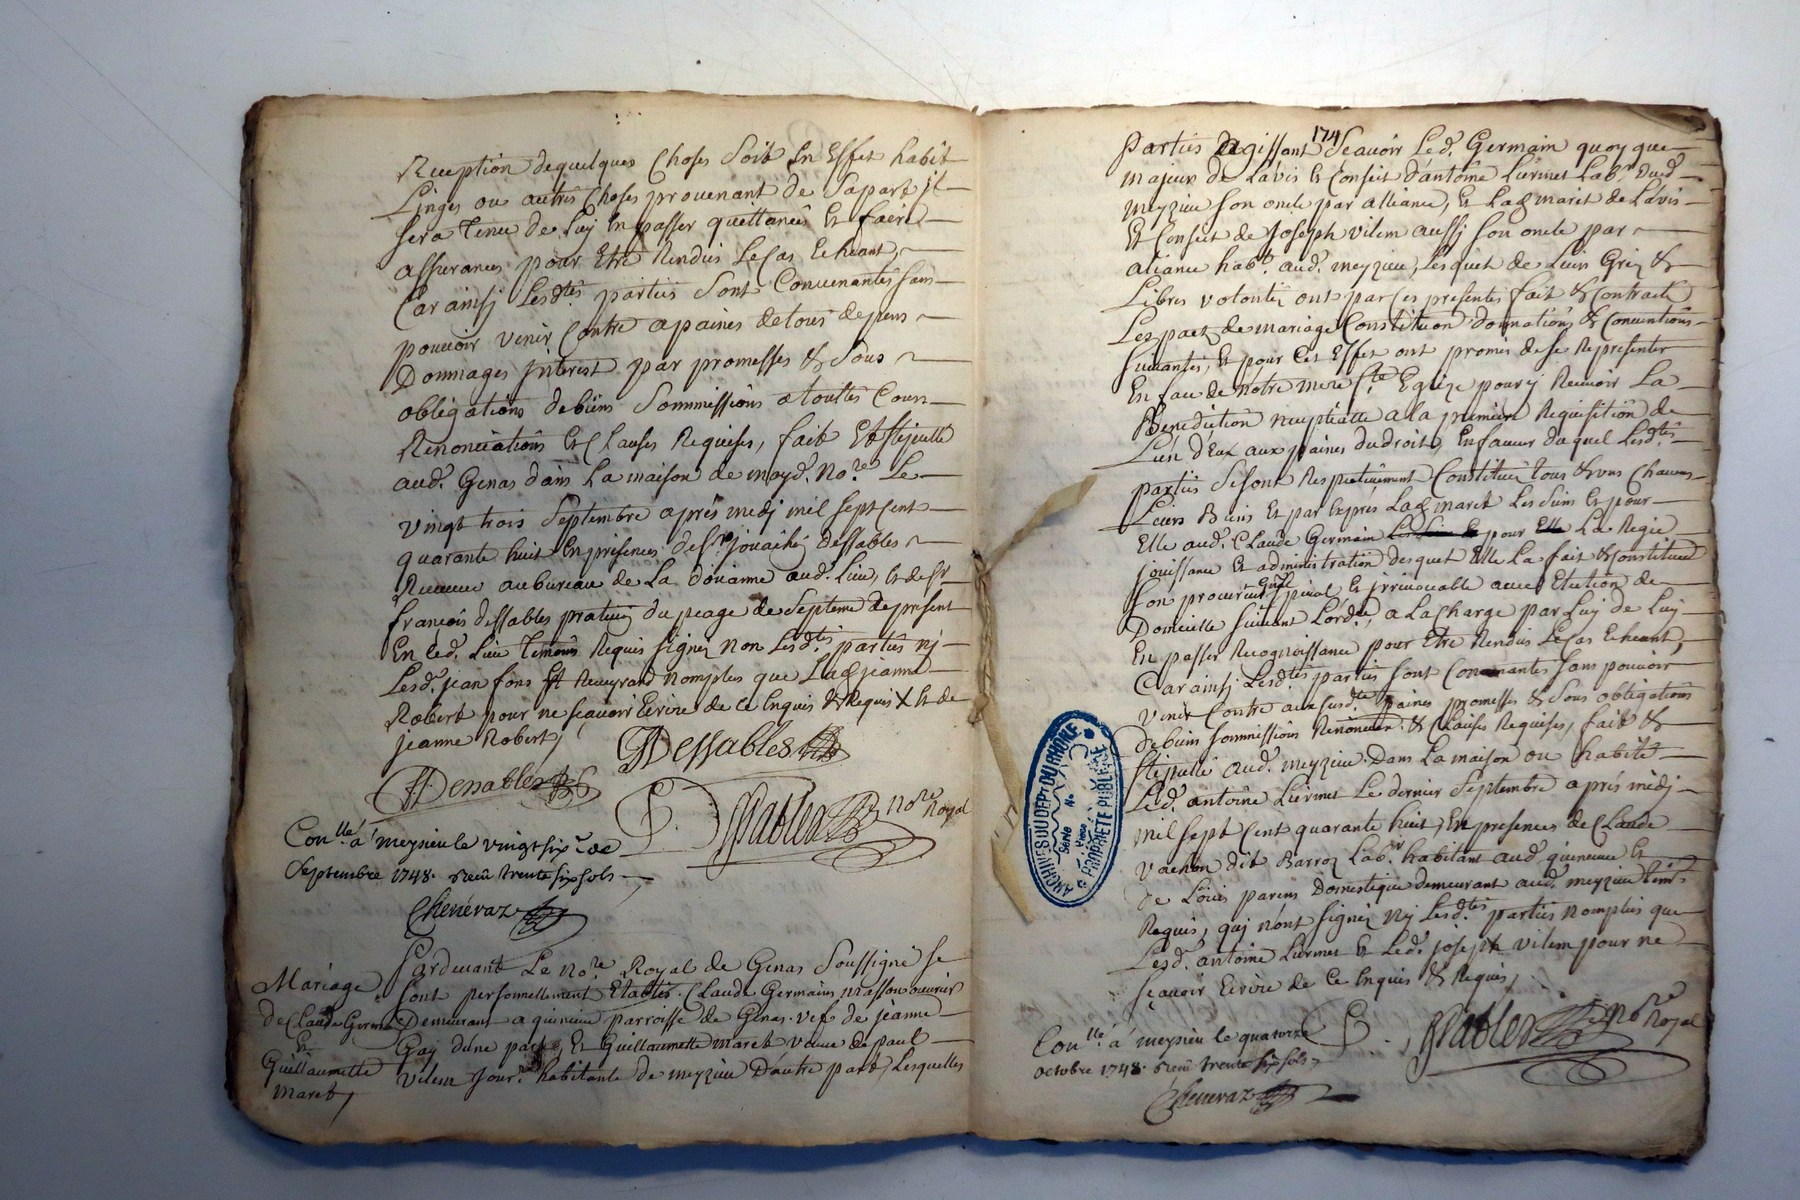 Reception dequelques Choses Soit En Effet habit
Linges ou autres Choses provenant de Sapart il
sera Tenu de Luy En passer quittances Et faire
assurances pour Etre Rendus LeCas Echeant,
Car ainsj Lesdtes parties Sont Convenantes sans
pouvoir venir Contre apaines detous depens
Dommages interest par promesses & Sous
obligations debiens Sommissions atouttes Cours
Renonciations Et Clauses Requises, fait Et stipullé
aud. Genas dans La maison de moyd. Nore Le
vingt trois Septembre aprés medj mil sept Cent
quarante huit En présences de sr. jouachin dessables
Receveur aubureau de La doüanne aud. Lieu, & de sr
françois dessables du peage de Septeme depresent
En led. Lieu Temoins Requis signez non Lesdtes parties nj
Lesd. jean fons Et Reveyrand nomplus que Lad. jeanne
Robert pour ne sçavoir Ecrire de ce Enquis & Requis X & de
jeanne Robert,
Dessables
Dessables
Dessables Nore Royal
Conllé á meysieu le vingt six de
Septembre 1748. receu trente six sols
Chenevaz
Mariage
de Claude Germain
Et
Guillaumette
Maret,
Pardevant Le Nore Royal de Genas Soussigné se
sont personnellement Etablis. Claude Germain masson ouvrier
Demeurant a quincieu parroisse de Genas. vef. de jeanne
Gay dune part, Et Guillaumette Maret veuve de paul
vilem jour. habitante de meyzieu Dautre part, Lesquelles
174
Parties agissant Scavoir Led. Germain quoy que
majeur de Lávis & Conseit d'antoine Liermet Labr. dud.
meyzieu son oncle par alliance, Et Lad. maret de Lávis
Et Conseit de Joseph vilem aussj son oncle par
aliance habt. aud. meyzieu, Lesquels de Leurs Gréz &
Libres volontéz ont par Ces presentes fait & Contracté
Les pactz de mariage Constitution donnations & Conventions
suivantes, Et pour Cet Effet ont promis de se Representer
En face de Notre mere ste. Eglize pour y Recevoir La
Benediction nuptialle a la premiere Requisition de
Lún d'Eux aux paines dudroit, En faveur duquel Lesdtes
parties Se sont Respectivement Constitués tous & uns Chacuns
Leurs Biens Et par Exprés Lad. maret Les Siens Et pour
Elle aud. Claude Germain pour La Regie
jouissance Et administration desquels Elle La fait & Constitué
son procureur Gnal spécial Et irrevocable avec Election de
Domicille suivant Lórdce, a La Charge par Luy de Luy
En passer Recognoissance pour Etre Rendus LeCas Echeant,
Car ainsj Lesdtes parties sont Convenantes sans pouvoir
venir Contre aux susdte paines promesses & Sous obligations
debiens sommissions Renonciaon & Clauses Requises, fait &
stipullé aud. meyzieu. Dans La maison ou habite
Led. antoine Liermet Le dernier Septembre aprés medj
mil sept Cent quarante huit, En presences de Claude
vachon dit Barroz Labr. habitant aud. quincieu Et
de Loüis parens domestique demeurant aud. meyzieu temr.
Requis, quj nónt signéz Nj Lesdtes parties nomplus que
Lesd. antoine Liermet Et Led. joseph vilem pour ne
sçavoir Ecrire de Ce Enquis & Requis,
Dessables Nore Royal
Conllé á meysieu le quatorze
octobre 1748. receu trente six sols
Chenevaz
ARCHIVES DU DEPT DU RHONE
Série
No
Pièce
PROPRIETE PUBLIQUE